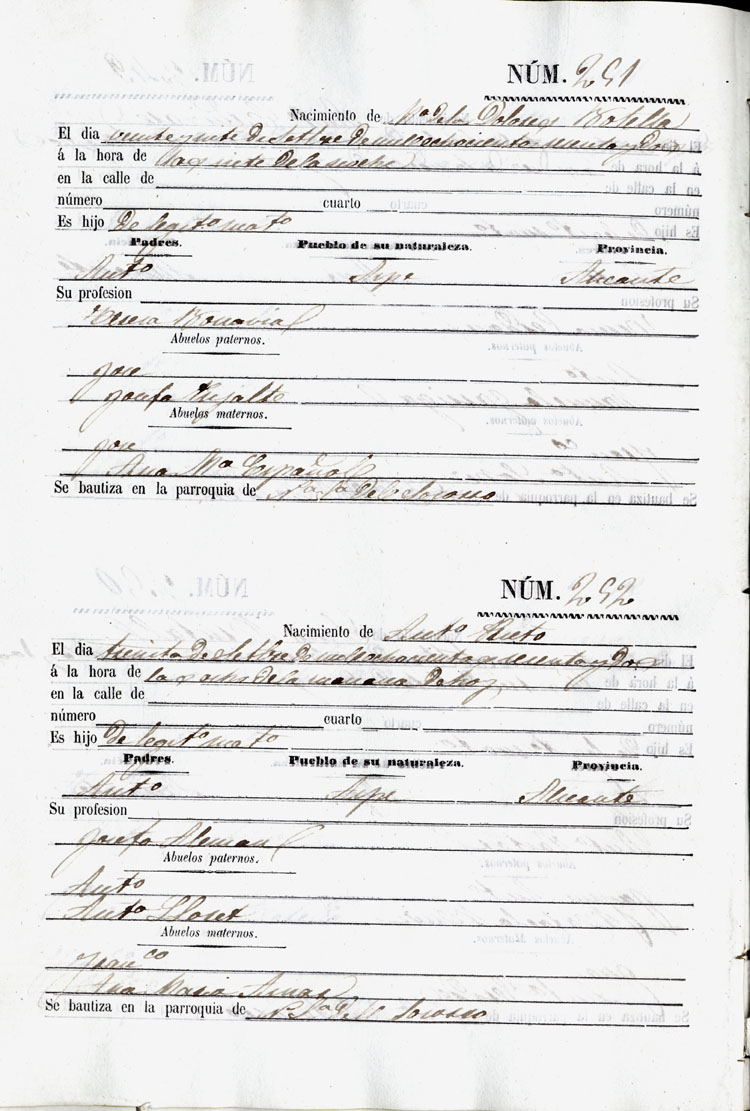 NÚM. 251
Nacimiento de Mª de la Dolores Botella
El dia veinte y siete de Setbre de mil ochocientos sesenta y dos
á la hora de las siete de la noche
en la calle de
número cuarto
Es hijo de legitº matº
Padres. Pueblo de su naturaleza. Provincia.
Antº Aspe Alicante
Su profesion
Teresa Bonavia
Abuelos paternos.
José
Josefa
Abuelos maternos.
José
Ana Mª Español
Se bautiza en la parroquia de Nª Sª del Socorro
NÚM. 252
Nacimiento de Antº
El dia treinta de Setbre de mil ochocientos sesenta y dos
á la hora de las ocho de la mañana de hoy
en la calle de
número cuarto
Es hijo de legitº matº
Padres. Pueblo de su naturaleza. Provincia.
Antº Aspe Alicante
Su profesion
Josefa Aleman
Abuelos paternos.
Antº
Antª Lloret
Abuelos maternos.
Franco
Ana Maria
Se bautiza en la parroquia de Nª Sª del Socorro